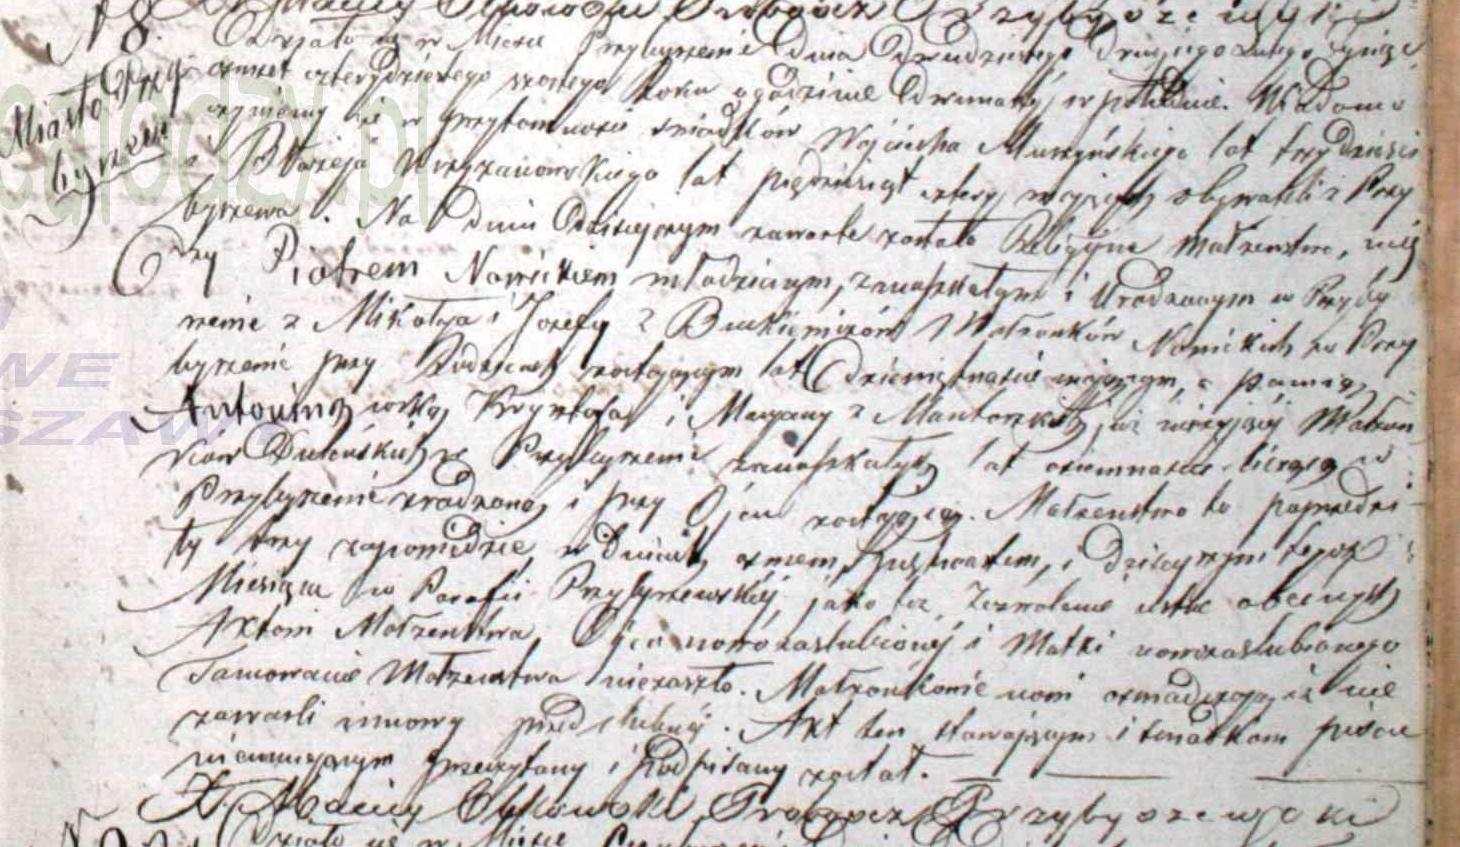 N 8.
Miasto Przy
byszew
Działo się w Mieście Przybyszewie Dnia Dwudziestego drugiego Lutego tysiąc
ośmset czterydziestego szóstego Roku o godzinie Dwunastej w południe. Wiadomo
czyniemy iż w przytomności świadków Wojciecha Muszyńskiego lat trzydzieści
i Błażeja Krzyżanowskiego lat pięćdziesiąt cztery mających obywateli z Przy
byszewa. Na dniu Dzisiejszym zawarte zostało Religijne małżeństwo, mię
dzy Piotrem Nowickiem młodzianym, zamieszkałym i Urodzonym w Przyby
szewie z Mikołaja i Józefy z Małżonków Nowickich w Przy
byszewie przy Rodzicach zostającym lat Dziewiętnaście mającym, a Panną
Antoniną córką Krysztofa i Maryany z już nieżyjącej Małżon
ków w Przybyszewie zamieszkałych lat ośmnaście liczącą w
Przybyszewie zrodzoną i przy Ojcu zostającą. Małżeństwo to poprzedzi
ły trzy zapowiedzie w Dniach ósmem, piętnastem, i dzisiejszym tegoż
Miesiąca w Parafii Przybyszewskiej, jako też Zezwolenie ustne obecnych
Aktowi Małżeństwa, Ojca nowozaślubionej i Matki nowozaślubionego
Tamowanie Małżeństwa niezaszło. Małżonkowie nowi oświadczają, iż nie
zawarli umowy przedślubnej. Akt ten stawającym i świadkom pisać
nieumiejącym przeczytany i Podpisany został.
X. Maciej Proboszcz Przybyszewski
Działo się w Mieście